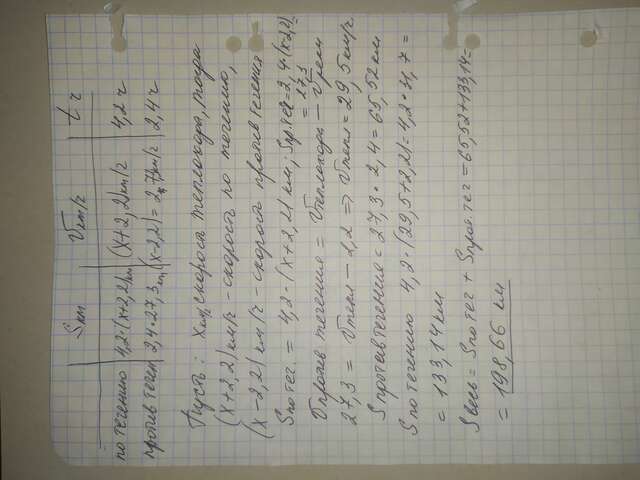 Sкм Vкм/г t г
по течению 4,2·(x+2,2)км (x+2,2)км/г 4,2 г
против течен 2,4·27,3км (x-2,2)=27,3км/г 2,4г
Пусть: xкм/г скорость теплохода, тогда
(x+2,2) км/г - скорость по течению,
(x-2,2) км/г - скорость против течения
Sпо теч. = 4,2·(x+2,2) км; Sпр.теч=2,4·(x-2,2)
= 27,3
Vпротив течения = Vтеплохода - Vреки
27,3 = Vтепл - 2,2 => Vтепл = 29,5 км/г
S против течения = 27,3·2,4 = 65,52 км
S по течению 4,2·(29,5+2,2)=4,2·31,7=
= 133,14 км
Sвесь = Sпо теч + Sпрот.теч = 65,52+133,14=
= 198,66 км